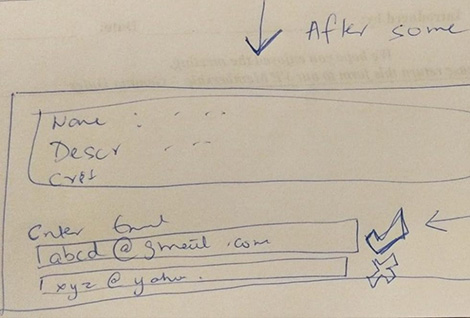 After some
Name : - - -
Descr - - -
Enter Email
abcd@gmail.com
xyz@yahoo.